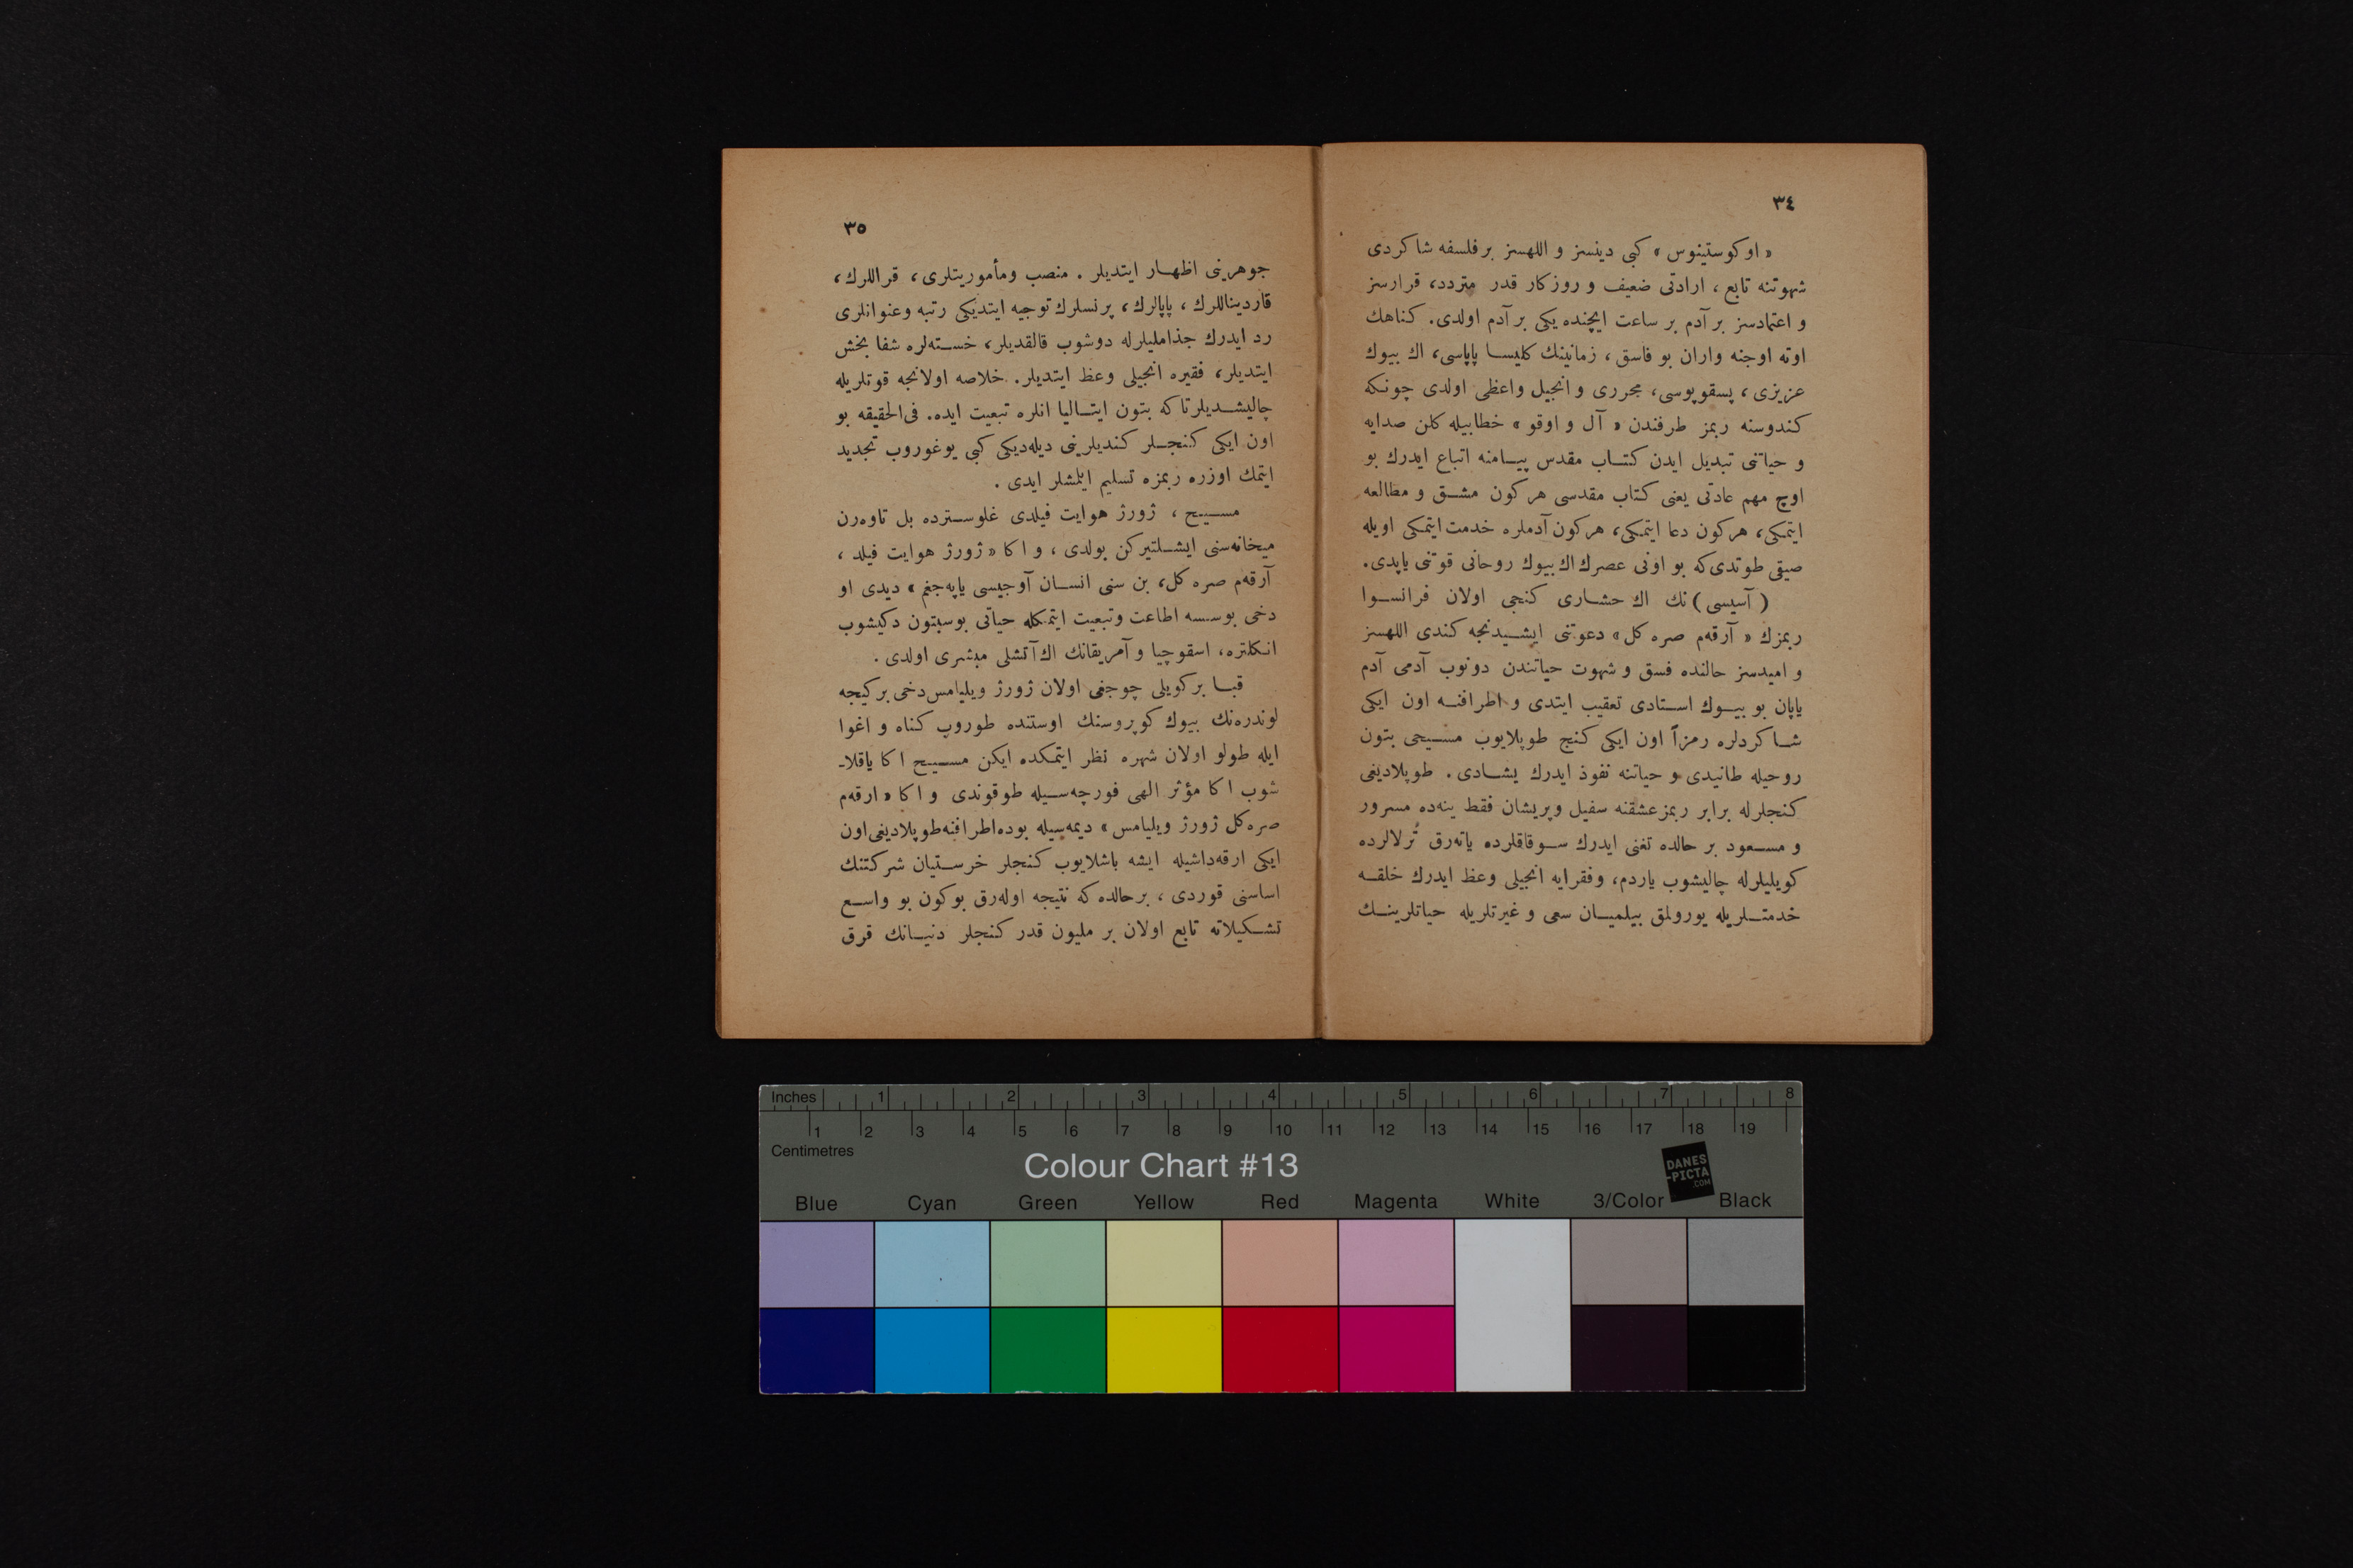 ٣٤
« اوكوستينوس » كبى دينسز و اللهسز بر فلسفه شاكردى
شهوتنه تابع ، ارادتى ضعيف و روزكار قدر متردد، قرارسز
و اعتمادسز بر آدم بر ساعت ايچنده يكى بر آدم اولدى. كناهك
اوته اوجنه واران بو فاسق ، زمانينك كليسا پاپاسى، اك بيوك
عزيزى ، پسقوپوسى، محررى و انجيل واعظى اولدى چونكه
كندوسنه ربمز طرفندن « آل و اوقو » خطابيله كلن صدايه
و حياتنى تبديل ايدن كتاب مقدس پيامنه اتباع ايدرك بو
اوچ مهم عادتى يعنى كتاب مقدسى هركون مشق و مطالعه
ايتمكى، هركون دعا ايتمكى، هركون آدملره خدمت ايتمكى اويله
صيقى طوتدى كه بو اونى عصرك اك بيوك روحانى قوتنى ياپدى.
( آسيسى ) نك اك حشارى كنجى اولان فرانسوا
ربمزك « آرقه‌م صره كل» دعوتنى ايشيدنجه كندى اللهسز
و اميدسز حالنده فسق و شهوت حياتندن دونوب آدمى آدم
ياپان بو بيوك استادى تعقيب ايتدى و اطرافنه اون ايكى
شاكردلره رمزاً اون ايكى كنج طوپلايوب مسيحى بتون
روحيله طانيدى و حياتنه نفوذ ايدرك يشادى. طوپلاديغى
كنجلرله برابر ربمز عشقنه سفيل و پريشان فقط ينه‌ده مسرور
و مسعود بر حالده تغنى ايدرك سوقاقلرده ياته‌رق تُرلالرده
كويليلرله چاليشوب ياردم، وفقرايه انجيلى وعظ ايدرك خلقه
خدمتلريله يورولمق بيلميان سعى و غيرتلريله حياتلرينك
٣٥
جوهرينى اظهار ايتديلر . منصب ومأموريتلرى، قراللرك،
قارديناللرك ، پاپالرك، پرنسلرك توجيه ايتديكى رتبه وعنوانلرى
رد ايدرك جذامليلرله دوشوب قالقديلر، خسته‌لره شفا بخش
ايتديلر، فقيره انجيلى وعظ ايتديلر. خلاصه اولانجه قوتلريله
چاليشديلر تا كه بتون ايتاليا انلره تبعيت ايده. فى‌الحقيقه بو
اون ايكى كنجلر كنديلرينى ديله‌ديكى كبى يوغوروب تجديد
ايتمك اوزره ربمزه تسليم ايتمشلر ايدى .
مسيح ، ژورژ هوايت فيلدى غلوسترده بل تاوه‌رن
ميخانه‌سنى ايشلتيركن بولدى ، و اكا « ژورژ هوايت فيلد ،
آرقه‌م صره كل، بن سنى انسان آوجيسى ياپه‌جغم » ديدى او
دخى بوسسه اطاعت وتبعيت ايتمكله حياتى بوسبتون دكيشوب
انكلتره، اسقوچيا و آمريقانك اك آتشلى مبشرى اولدى .
قبا بر كويلى چوجغى اولان ژورژ ويليامس دخى بر كيجه
لوندره‌نك بيوك كوپروسنك اوستنده طوروب كناه و اغوا
ايله طولو اولان شهره نظر ايتمكده ايكن مسيح اكا ياقلا-
شوب اكا مؤثر الهى فورچه‌سيله طوقوندى و اكا « ارقه‌م
صره كل ژورژ ويليامس » ديمه‌سيله بوده اطرافنه طوپلاديغى اون
ايكى ارقه‌داشيله ايشه باشلايوب كنجلر خرستيان شركتنك
اساسنى قوردى ، بر حالده كه نتيجه اوله‌رق بوكون بو واسع
تشكيلاته تابع اولان بر مليون قدر كنجلر دنيانك قرق
Inches 1 2 3 4 5 6 7 8
1 2 3 4 5 6 7 8 9 10 11 12 13 14 15 16 17 18 19
Centimetres
Colour Chart #13
DANES
-PICTA
.COM
Blue Cyan Green Yellow Red Magenta White 3/Color Black